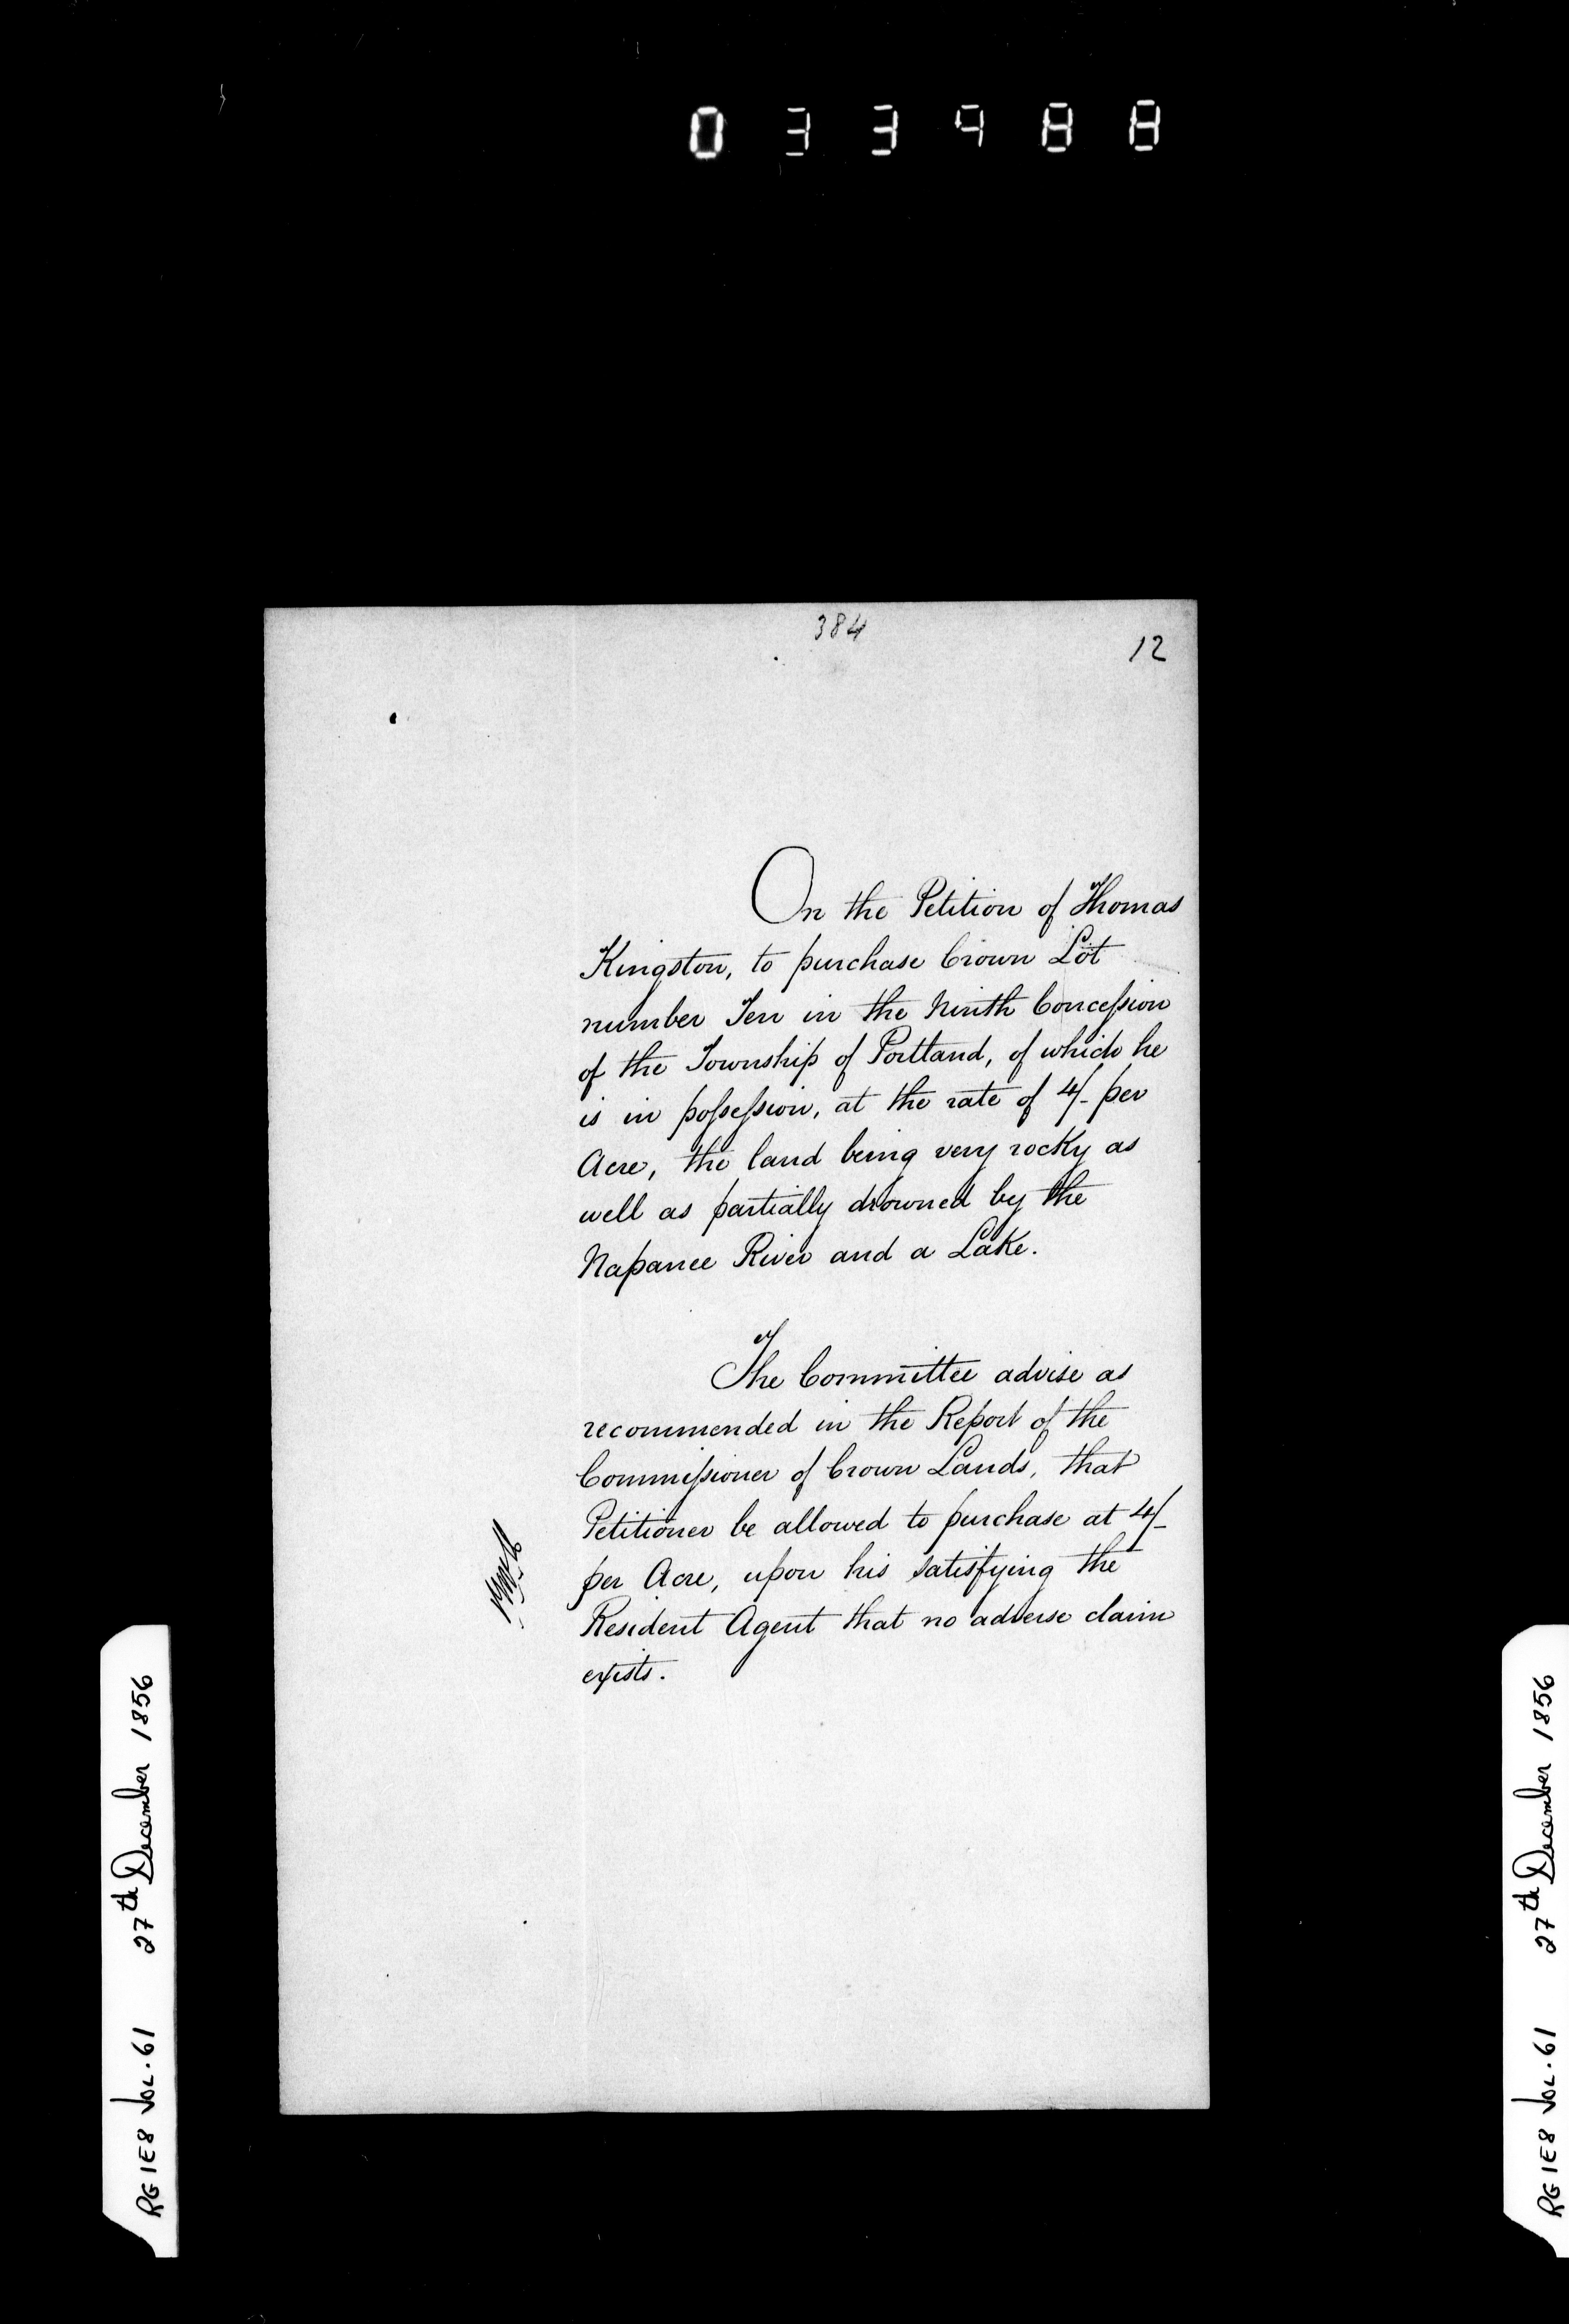 033988
384
12
On the Petition of Thomas
Kingston, to purchase Crown Lot
number Ten in the Ninth Concession
of the Township of Portland, of which he
is in possession, at the rate of 4/- per
Acre, the land being very rocky as
well as partially drowned by the
Napanee River and a Lake.
The Committee advise as
recommended in the Report of the
Commissioner of Crown Lands, that
Petitioner be allowed to purchase at 4/-
per Acre, upon his satisfying the
Resident Agent that no adverse claim
exists.
RG 1E8 VOL.61 27th December 1856
RG 1E8 VOL.61 27th December 1856